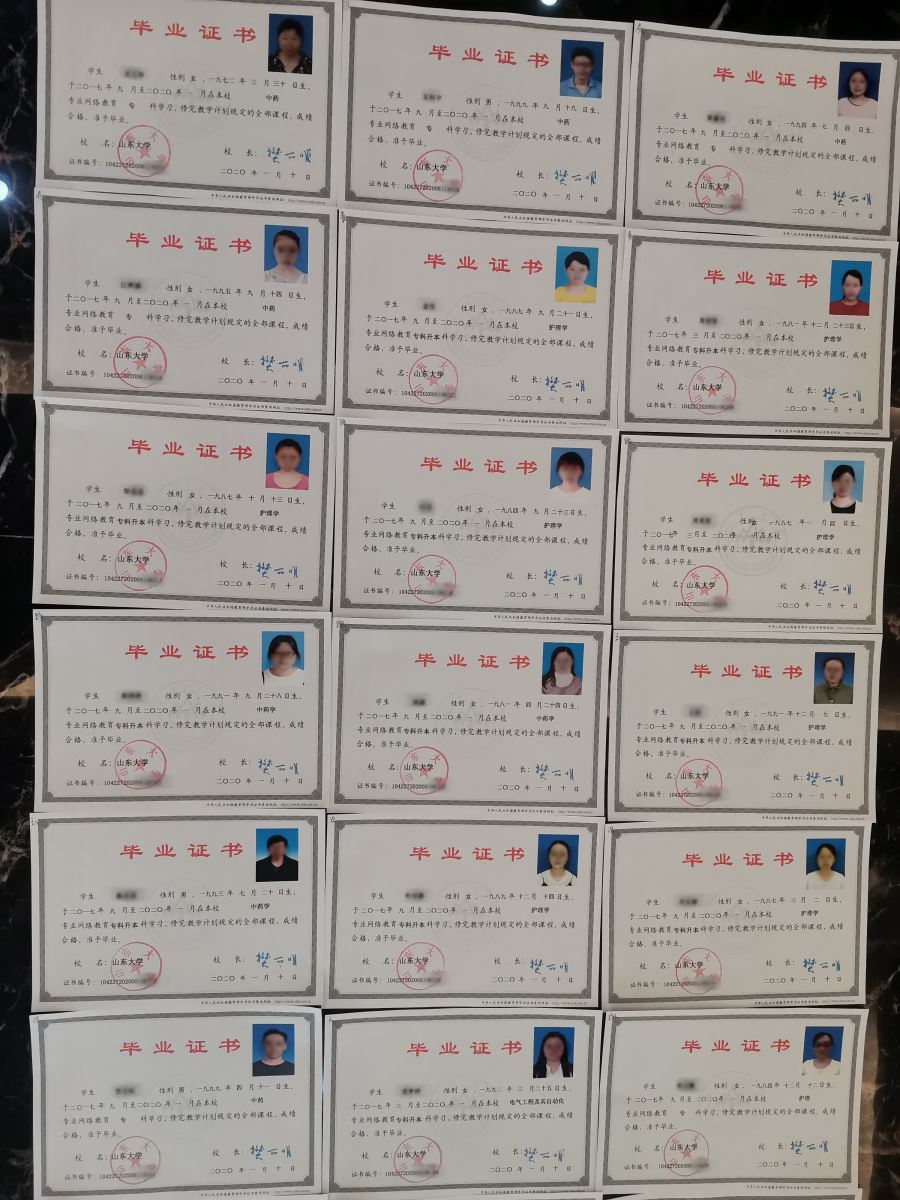 毕业证书
学生 性别 女 ,一九七二年 三 月 三十 日生,
于二〇一七年 九 月至二〇二〇年 一 月在本校 中药
专业网络教育 专 科学习,修完教学计划规定的全部课程,成绩
合格,准予毕业。
校 名:山东大学 校 长:
证书编号:104227202006
二〇二〇 年 一 月 十 日
毕业证书
学生 性别 男 ,一九九九年 九 月 十九 日生,
于二〇一七年 九 月至二〇二〇年 一 月在本校 中药
专业网络教育 专 科学习,修完教学计划规定的全部课程,成绩
合格,准予毕业。
校 名:山东大学 校 长:
证书编号:104227202006
二〇二〇 年 一 月 十 日
毕业证书
学生 性别 女 ,一九九四年 七 月 四 日生,
于二〇一七年 九 月至二〇二〇年 一 月在本校 中药
专业网络教育 专 科学习,修完教学计划规定的全部课程,成绩
合格,准予毕业。
校 名:山东大学 校 长:
证书编号:104227202006
二〇二〇 年 一 月 十 日
毕业证书
学生 性别 女 ,一九九五年 九 月 十四 日生,
于二〇一七年 九 月至二〇二〇年 一 月在本校 中药
专业网络教育 专 科学习,修完教学计划规定的全部课程,成绩
合格,准予毕业。
校 名:山东大学 校 长:
证书编号:10422720200
二〇二〇 年 一 月 十 日
毕业证书
学生 性别 女 ,一九八九年 九 月二十一日生,
于二〇一七年 九 月至二〇二〇年 一 月在本校 护理学
专业网络教育专科升本科学习,修完教学计划规定的全部课程,成绩
合格,准予毕业。
校 名:山东大学 校 长:
证书编号:1042272020
二〇二〇 年 一 月 十 日
毕业证书
学生 性别 女 ,一九八一年十二月 二十三日生,
于二〇一七年 三 月至二〇二〇年 一 月在本校 护理学
专业网络教育专科升本科学习,修完教学计划规定的全部课程,成绩
合格,准予毕业。
校 名:山东大学 校 长:
证书编号:1042272020
二〇二〇 年 一 月 十 日
毕业证书
学生 性别 女 ,一九八七年 十 月 十三 日生,
于二〇一七年 九 月至二〇二〇年 一 月在本校 护理学
专业网络教育专科升本科学习,修完教学计划规定的全部课程,成绩
合格,准予毕业。
校 名:山东大学 校 长:
证书编号:1042272020
二〇二〇 年 一 月 十 日
毕业证书
学生 性别 女 ,一九八四年 九 月二十三日生,
于二〇一七年 九 月至二〇二〇年 一 月在本校 护理学
专业网络教育专科升本科学习,修完教学计划规定的全部课程,成绩
合格,准予毕业。
校 名:山东大学 校 长:
证书编号:1042272020
二〇二〇 年 一 月 十 日
毕业证书
学生 性别 女 ,一九八七年 一 月 四 日生,
于二〇一七年 三 月至 二〇二〇年 一 月在本校 护理学
专业网络教育专科升本科学习,修完教学计划规定的全部课程,成绩
合格,准予毕业。
校 名:山东大学 校 长:
证书编号:1042272020
二〇二〇 年 一 月 十 日
毕业证书
学生 性别 女 ,一九九一年 九 月二十八日生,
于二〇一七年 九 月至二〇二〇年 一 月在本校 中药学
专业网络教育专科升本科学习,修完教学计划规定的全部课程,成绩
合格,准予毕业。
校 名:山东大学 校 长:
证书编号:1042272020
二〇二〇 年 一 月 十 日
毕业证书
学生 性别 女 ,一九八一年 四 月二十四日生,
于二〇一七年 九 月至二〇二〇年 一 月在本校 中药学
专业网络教育专科升本科学习,修完教学计划规定的全部课程,成绩
合格,准予毕业。
校 名:山东大学 校 长:
证书编号:1042272020
二〇二〇 年 一 月 十 日
毕业证书
学生 性别 女 ,一九九一年十二月 七 日生,
于二〇一七年 九 月至二〇二〇年 一 月在本校 护理学
专业网络教育专科升本科学习,修完教学计划规定的全部课程,成绩
合格,准予毕业。
校 名:山东大学 校 长:
证书编号:1042272020
二〇二〇 年 一 月 十 日
毕业证书
学生 性别 男 ,一九九三年 七 月 二十 日生,
于二〇一七年 九 月至二〇二〇年 一 月在本校 中药学
专业网络教育专科升本科学习,修完教学计划规定的全部课程,成绩
合格,准予毕业。
校 名:山东大学 校 长:
证书编号:1042272020
二〇二〇 年 一 月 十 日
毕业证书
学生 性别 女 ,一九八九年十二月 十四 日生,
于二〇一七年 九 月至二〇二〇年 一 月在本校 护理学
专业网络教育专科升本科学习,修完教学计划规定的全部课程,成绩
合格,准予毕业。
校 名:山东大学 校 长:
证书编号:1042272020
二〇二〇 年 一 月 十 日
毕业证书
学生 性别 女 ,一九八七年 三 月 二 日生,
于二〇一七年 九 月至二〇二〇年 一 月在本校 护理学
专业网络教育专科升本科学习,修完教学计划规定的全部课程,成绩
合格,准予毕业。
校 名:山东大学 校 长:
证书编号:1042272020
二〇二〇 年 一 月 十 日
毕业证书
学生 性别 男 ,一九九九年 四 月 十一 日生,
于二〇一七年 九 月至二〇二〇年 一 月在本校 中药
专业网络教育 专 科学习,修完教学计划规定的全部课程,成绩
合格,准予毕业。
校 名:山东大学 校 长:
证书编号:104227202006
二〇二〇 年 一 月 十 日
毕业证书
学生 性别 女 ,一九九二年 二月二十五日生,
于二〇一七年 三 月至二〇二〇年 一 月在本校 电气工程及其自动化
专业网络教育专科升本科学习,修完教学计划规定的全部课程,成绩
合格,准予毕业。
校 名:山东大学 校 长:
证书编号:1042272020
二〇二〇 年 一 月 十 日
毕业证书
学生 性别 女 ,一九八四年十二月 十二 日生,
于二〇一七年 九 月至二〇二〇年 一 月在本校 护理
专业网络教育 专 科学习,修完教学计划规定的全部课程,成绩
合格,准予毕业。
校 名:山东大学 校 长:
证书编号:104227202006
二〇二〇 年 一 月 十 日